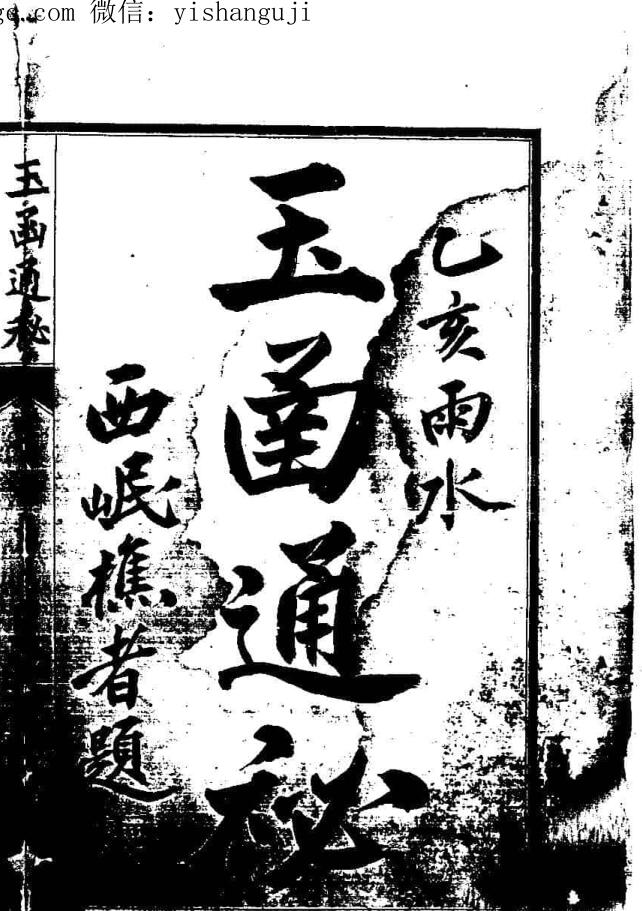 gg.com 微信：yishanguji
乙亥雨水
玉函通秘
西岷樵者題
玉函通秘